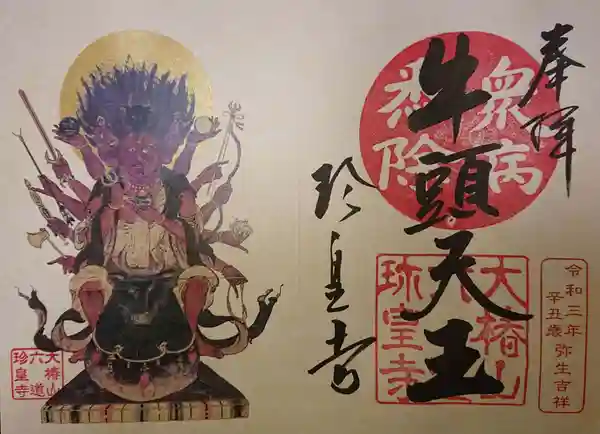 奉拝
令和三年
辛丑歳 弥生吉祥
衆病
悉除
牛頭天王
大椿山
珎皇寺
珍皇寺
大椿山
六道
珍皇寺